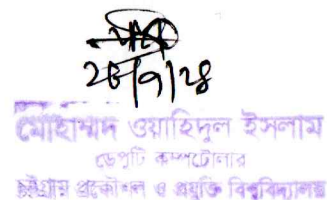 ২৪/৭/২৪
মোহাম্মদ ওয়াহিদুল ইসলাম
ডেপুটি কম্পট্রোলার
চট্টগ্রাম প্রকৌশল ও প্রযুক্তি বিশ্ববিদ্যালয়